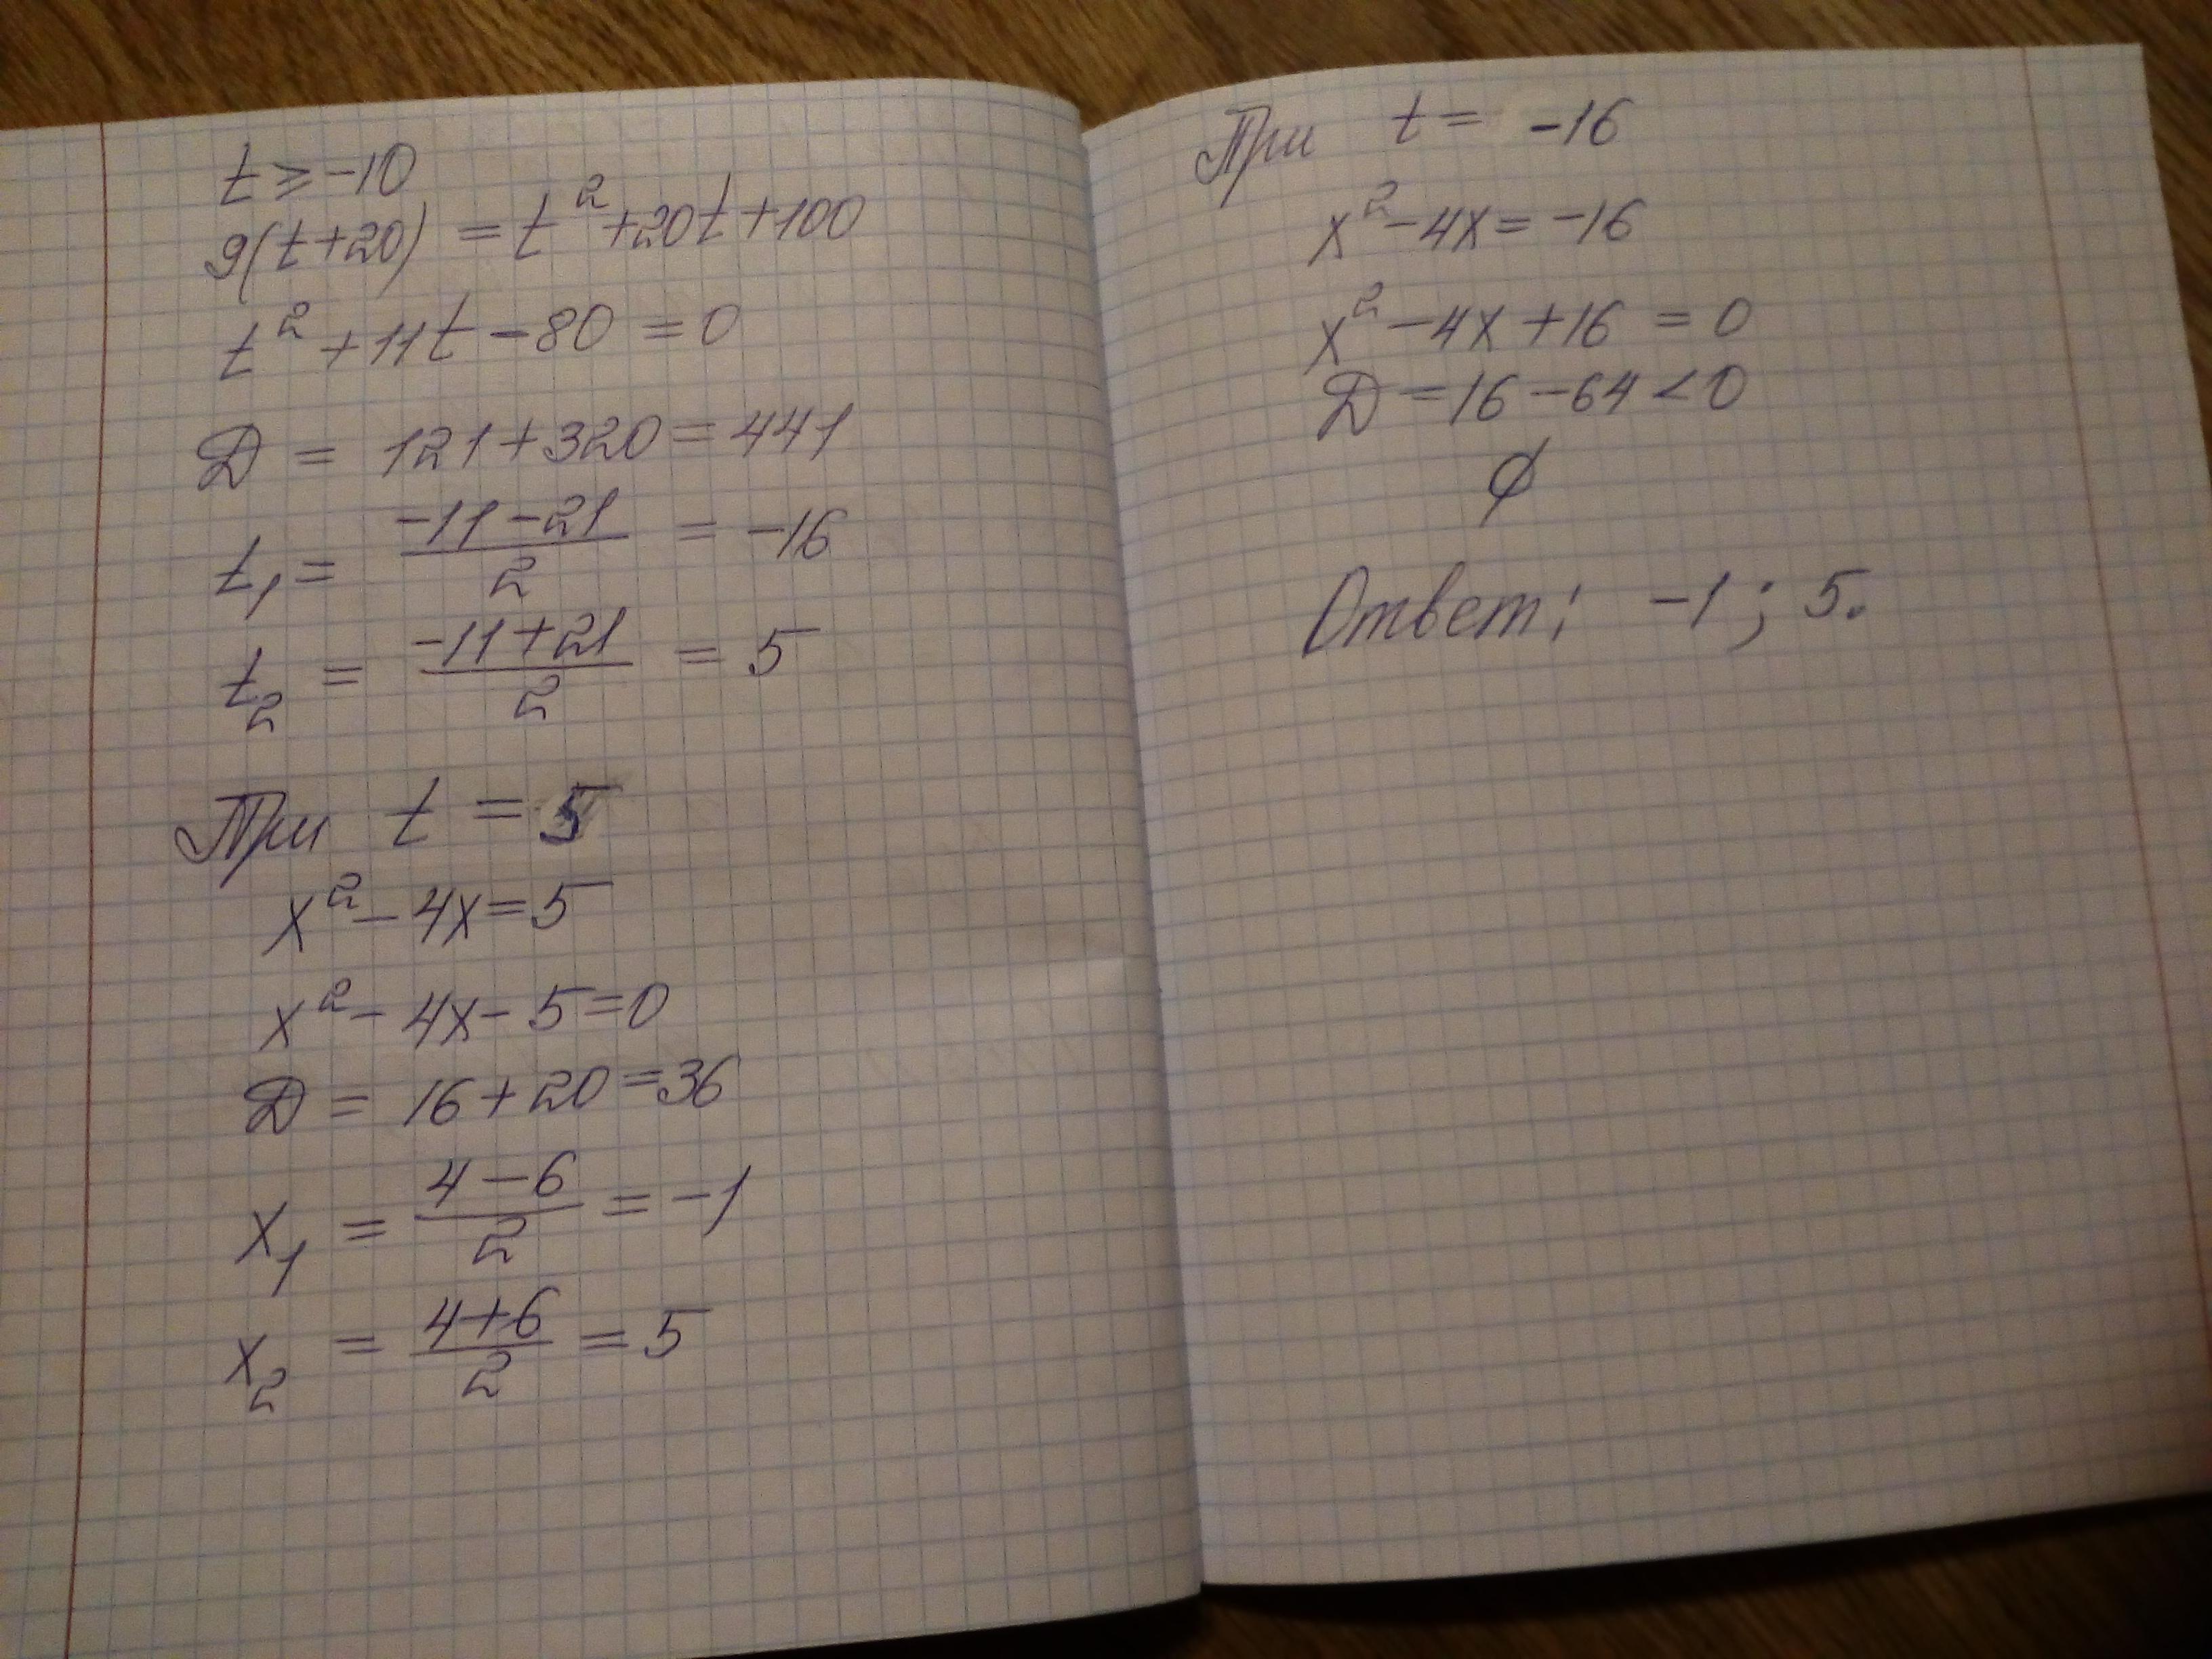 t ≥ -10
9(t+20) = t² + 20t + 100
t² + 11t - 80 = 0
D = 121 + 320 = 441
t₁ = (-11 - 21)/2 = -16
t₂ = (-11 + 21)/2 = 5
При t = 5
x² - 4x = 5
x² - 4x - 5 = 0
D = 16 + 20 = 36
x₁ = (4 - 6)/2 = -1
x₂ = (4 + 6)/2 = 5
При t = -16
x² - 4x = -16
x² - 4x + 16 = 0
D = 16 - 64 < 0
∅
Ответ: -1; 5.